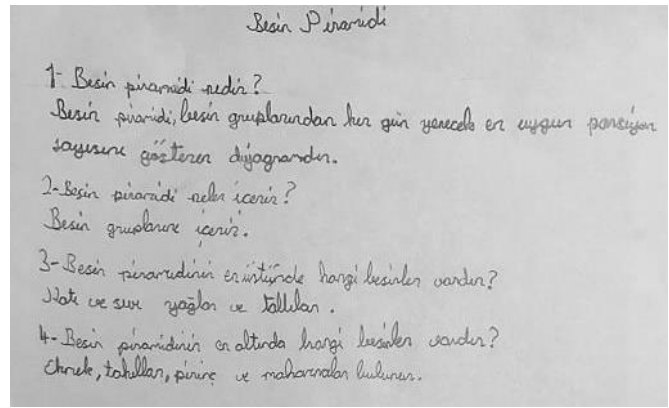 Besin Piramidi
1- Besin piramidi nedir?
Besin piramidi, besin gruplarından her gün yenecek en uygun porsiyon
sayısını gösteren diyagramdır.
2- Besin piramidi neler içerir?
Besin gruplarını içerir.
3- Besin piramidinin en üstünde hangi besinler vardır?
Katı ve sıvı yağlar ve tatlılar.
4- Besin piramidinin en altında hangi besinler vardır?
Ekmek, tahıllar, pirinç ve makarnalar bulunur.